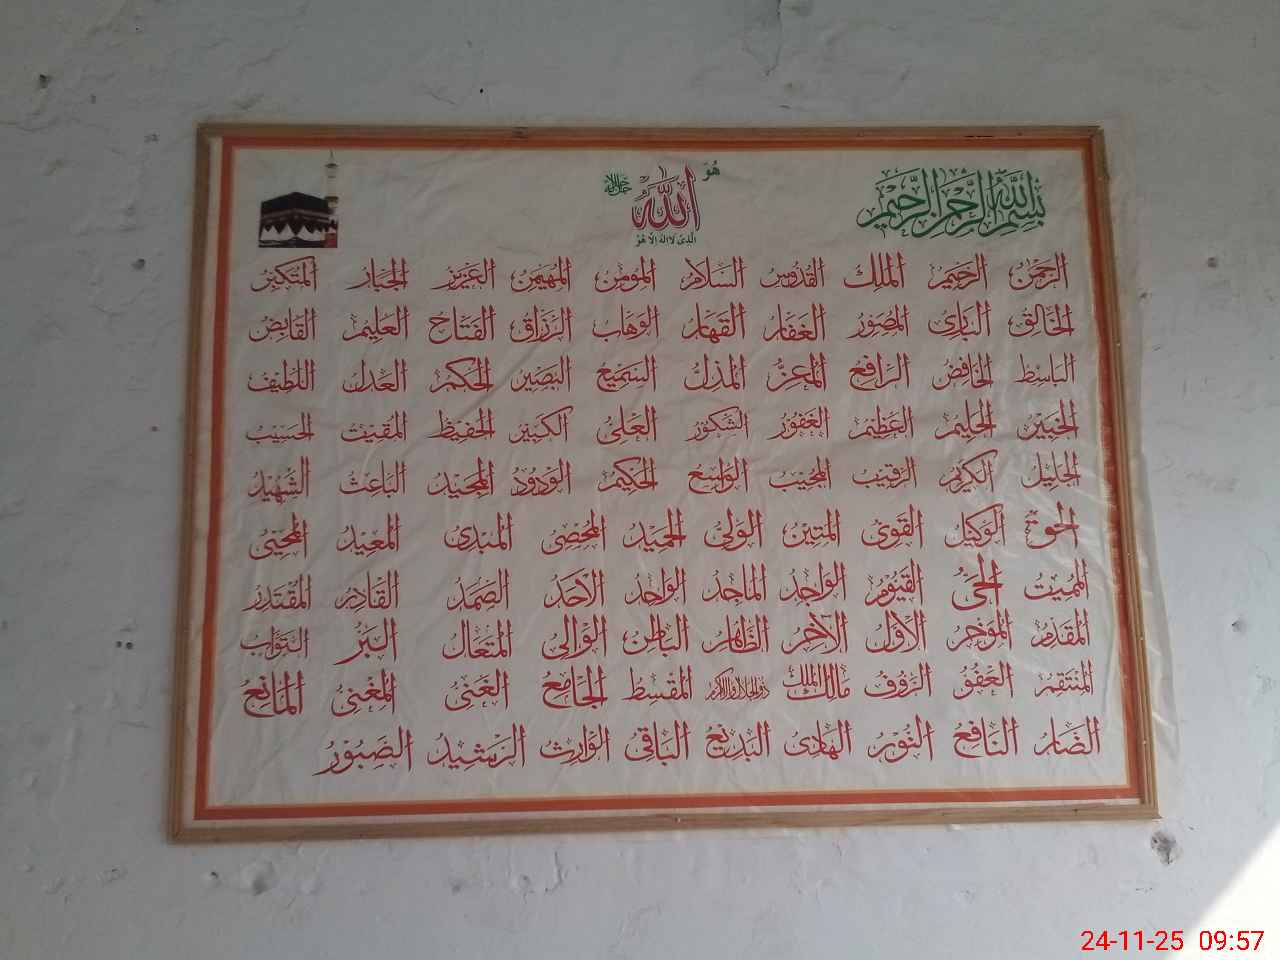 بسم الله الرحمن الرحيم
هو
الله
جل جلاله
الذي لا اله الا هو
الرحمن الرحيم الملك القدوس السلام المؤمن المهيمن العزيز الجبار المتكبر
الخالق البارئ المصور الغفار القهار الوهاب الرزاق الفتاح العليم القابض
الباسط الخافض الرافع المعز المذل السميع البصير الحكم العدل اللطيف
الخبير الحليم العظيم الغفور الشكور العلي الكبير الحفيظ المقيت الحسيب
الجليل الكريم الرقيب المجيب الواسع الحكيم الودود المجيد الباعث الشهيد
الحق الوكيل القوي المتين الولي الحميد المحصي المبدئ المعيد المحيي
المميت الحي القيوم الواجد الماجد الواحد الاحد الصمد القادر المقتدر
المقدم المؤخر الأول الآخر الظاهر الباطن الوالي المتعال البر التواب
المنتقم العفو الرؤوف مالك الملك ذوالجلال والاكرام المقسط الجامع الغني المغني المانع
الضار النافع النور الهادي البديع الباقي الوارث الرشيد الصبور
24-11-25 09:57